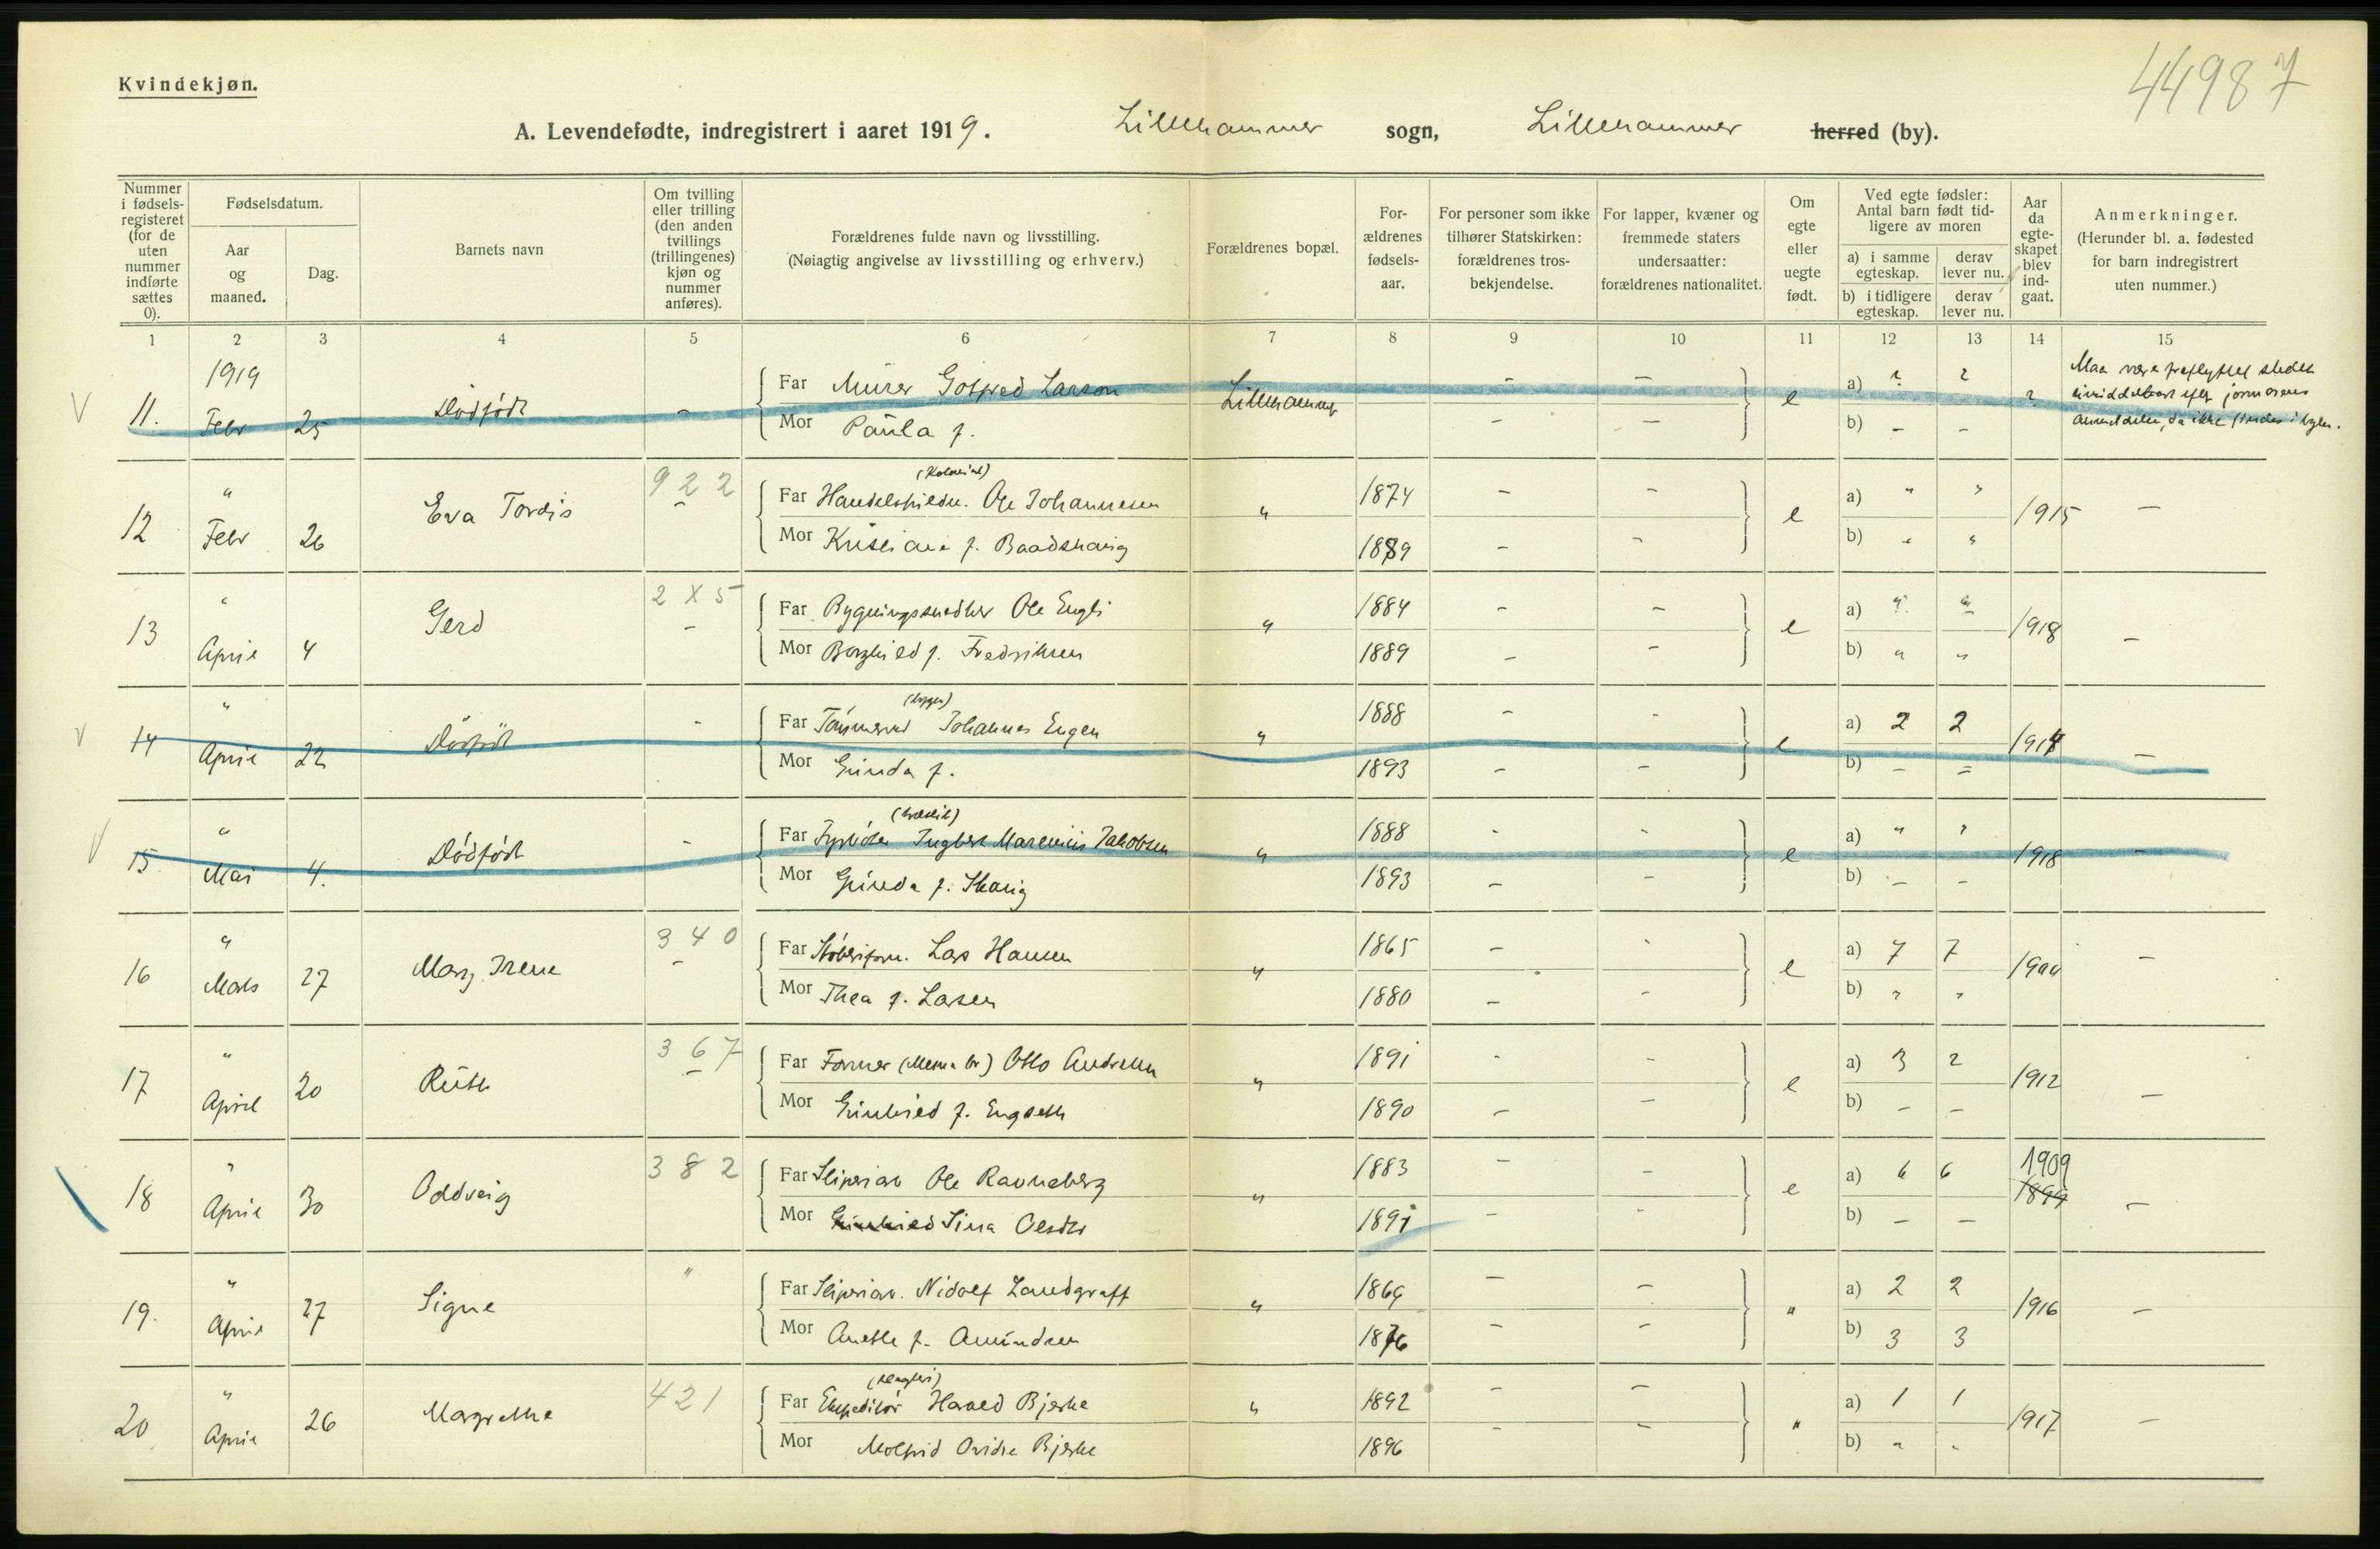 Kvindekjøn.
44987
A. Levendefødte, indregistrert i aaret 1919. Lillehammer sogn, Lillehammer herred (by).
Nummer i fødsels-registeret (for de uten nummer indførte sættes 0).
Fødselsdatum.
Aar og maaned.
Dag.
Barnets navn
Om tvilling eller trilling (den anden tvillings (trillingenes) kjøn og nummer anføres).
Forældrenes fulde navn og livsstilling.
(Nøiagtig angivelse av livsstilling og erhverv.)
Forældrenes bopæl.
For-ældrenes fødsels-aar.
For personer som ikke tilhører Statskirken: forældrenes tros-bekjendelse.
For lapper, kvæner og fremmede staters undersaatter: forældrenes nationalitet.
Om egte eller uegte født.
Ved egte fødsler: Antal barn født tid-ligere av moren
a) i samme egteskap. derav lever nu.
b) i tidligere egteskap. derav lever nu.
Aar da egte-skapet blev ind-gaat.
Anmerkninger.
(Herunder bl. a. fødested for barn indregistrert uten nummer.)
1 2 3 4 5 6 7 8 9 10 11 12 13 14 15
1919
11. Febr 25 Dødfødt - Far Murer Gotfred Larson Lillehammer - - e a) ? ? ?
Mor Paula f. - - b) - -
Maa være fraflyttet stedet
da ikke findes i byen.
12 " Febr 26 Eva Tordis 922 - (Kolonial)
Far Handelsbildn. Ole Johannesen " 1874 - - e a) " " 1915 -
Mor Kristiane f. Baadshaug 1889 - - b) " "
13 " April 4 Gerd 2 X 5 - Far Bygningssnedker Ole Engli " 1884 - - e a) " " 1918 -
Mor Borghild f. Fredriksen 1889 - - b) " "
14 " April 22 Dødfødt -
Far Johannes Engen " 1888 - - e a) 2 2 1914 -
Mor Gunda f. 1893 - - b) - =
15 " Mai 4. Dødfødt -
Far Ingbert Marenius Jakobsen " 1888 - - e a) " " 1918 -
Mor Gunda f. Skaug 1893 - - b) - -
16 " Mars 27 Marg Irene 340 - Far Støberiform. Lars Hansen " 1865 - - e a) 7 7 1900 -
Mor Thea f. Larsen 1880 - - b) " "
17 " April 20 Ruth 367 - Far Former (Mesna br) Otto Andresen " 1891 - - e a) 3 2 1912 -
Mor Gunhild f. Engseth 1890 - - b) - -
18 " April 30 Oddveig 382 Far Sliperiarb Ole Ravneberg " 1883 - - e a) 6 6 1909 1899 -
Mor Gunhild Sina Olesdtr 1891 - b) - -
19. " April 27 Signe " Far Sliperiarb. Nidolf Landgraff " 1869 - - " a) 2 2 1916 -
Mor Anette f. Amundsen 1876 - - b) 3 3
20 " April 26 Margrethe 421
Far Ekspeditør Harald Bjerke " 1892 - - " a) 1 1 1917 -
Mor Molfrid Ovidia Bjerke 1896 - - b) " "